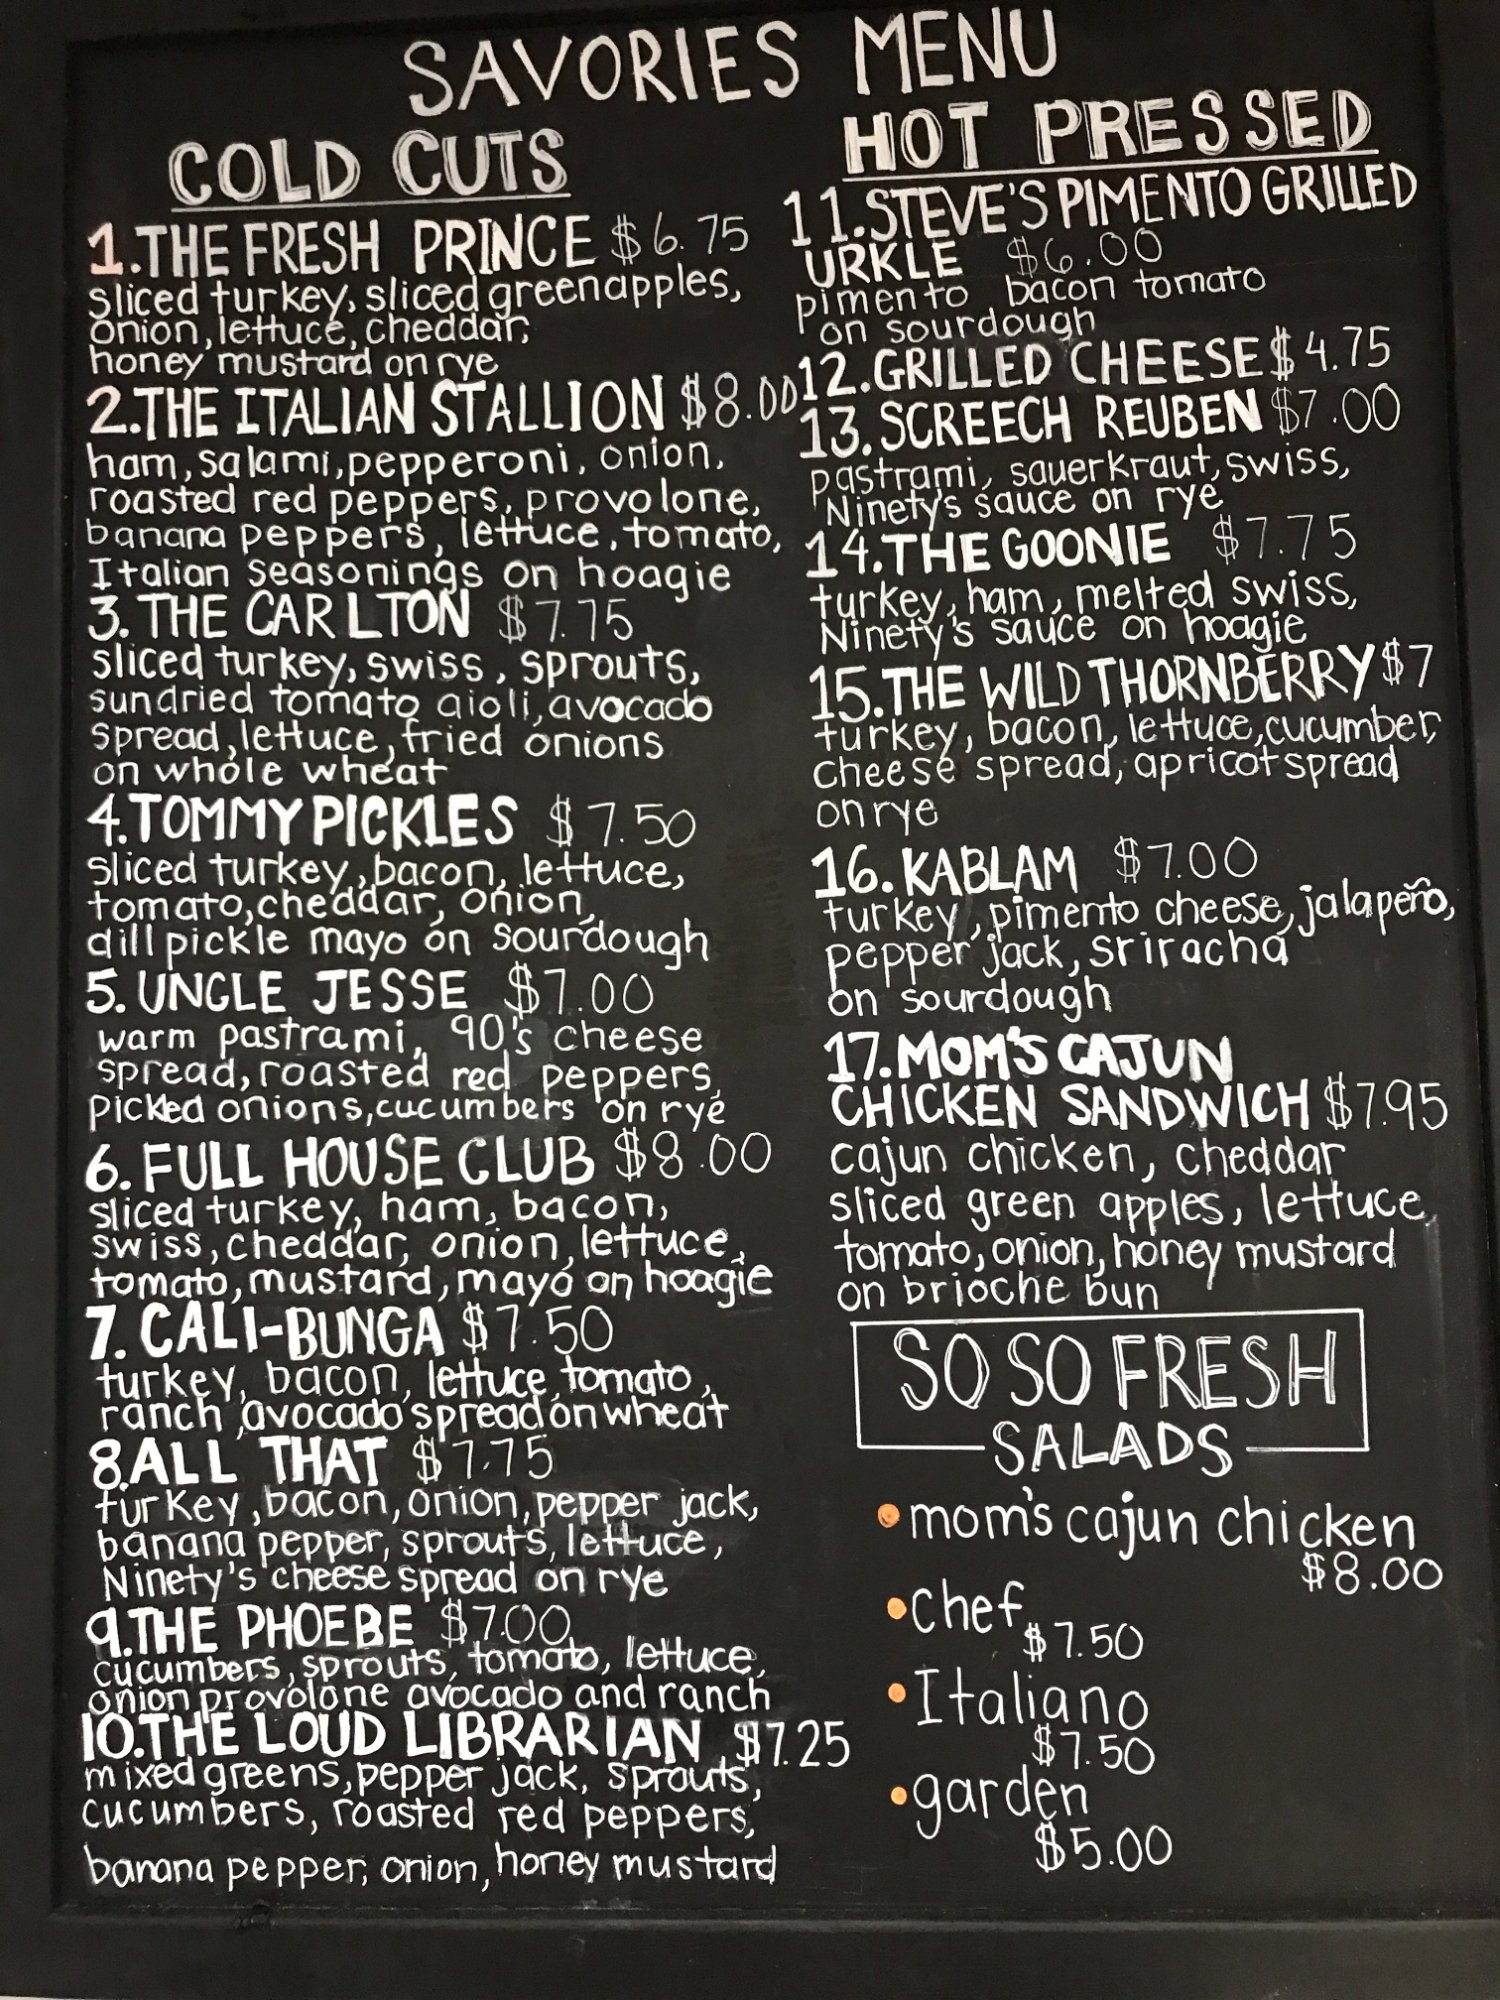 SAVORIES MENU
COLD CUTS
1.THE FRESH PRINCE $6.75
sliced turkey, sliced green apples,
onion, lettuce, cheddar,
honey mustard on rye
2.THE ITALIAN STALLION $8.00
ham, salami, pepperoni, onion,
roasted red peppers, provolone,
banana peppers, lettuce, tomato,
Italian seasonings on hoagie
3. THE CARLTON $7.75
sliced turkey, swiss, sprouts,
sundried tomato aioli, avocado
spread, lettuce, fried onions
on whole wheat
4.TOMMY PICKLES $7.50
sliced turkey, bacon, lettuce,
tomato, cheddar, onion,
dill pickle mayo on sourdough
5. UNCLE JESSE $7.00
warm pastrami, 90's cheese
spread, roasted red peppers,
picked onions, cucumbers on rye
6. FULL HOUSE CLUB $8.00
sliced turkey, ham, bacon,
swiss, cheddar, onion, lettuce,
tomato, mustard, mayo on hoagie
7. CALI-BUNGA $7.50
turkey, bacon, lettuce, tomato,
ranch, avocado spread on wheat
8.ALL THAT $7.75
turkey, bacon, onion, pepper jack,
banana pepper, sprouts, lettuce,
Ninety's cheese spread on rye
9.THE PHOEBE $7.00
cucumbers, sprouts, tomato, lettuce,
onion provolone avocado and ranch
10.THE LOUD LIBRARIAN $7.25
mixed greens, pepper jack, sprouts,
cucumbers, roasted red peppers,
banana pepper, onion, honey mustard
HOT PRESSED
11.STEVE'S PIMENTO GRILLED
URKLE $6.00
pimento, bacon tomato
on sourdough
12.GRILLED CHEESE $4.75
13. SCREECH REUBEN $7.00
pastrami, sauerkraut, swiss,
Ninety's sauce on rye
14.THE GOONIE $7.75
turkey, ham, melted swiss,
Ninety's sauce on hoagie
15.THE WILD THORNBERRY $7
turkey, bacon, lettuce, cucumber,
cheese spread, apricot spread
on rye
16. KABLAM $7.00
turkey, pimento cheese, jalapeño,
pepper jack, sriracha
on sourdough
17.MOM'S CAJUN
CHICKEN SANDWICH $7.95
cajun chicken, cheddar
sliced green apples, lettuce,
tomato, onion, honey mustard
on brioche bun
SO SO FRESH
SALADS
• mom's cajun chicken
$8.00
• chef
$7.50
• Italiano
$7.50
• garden
$5.00